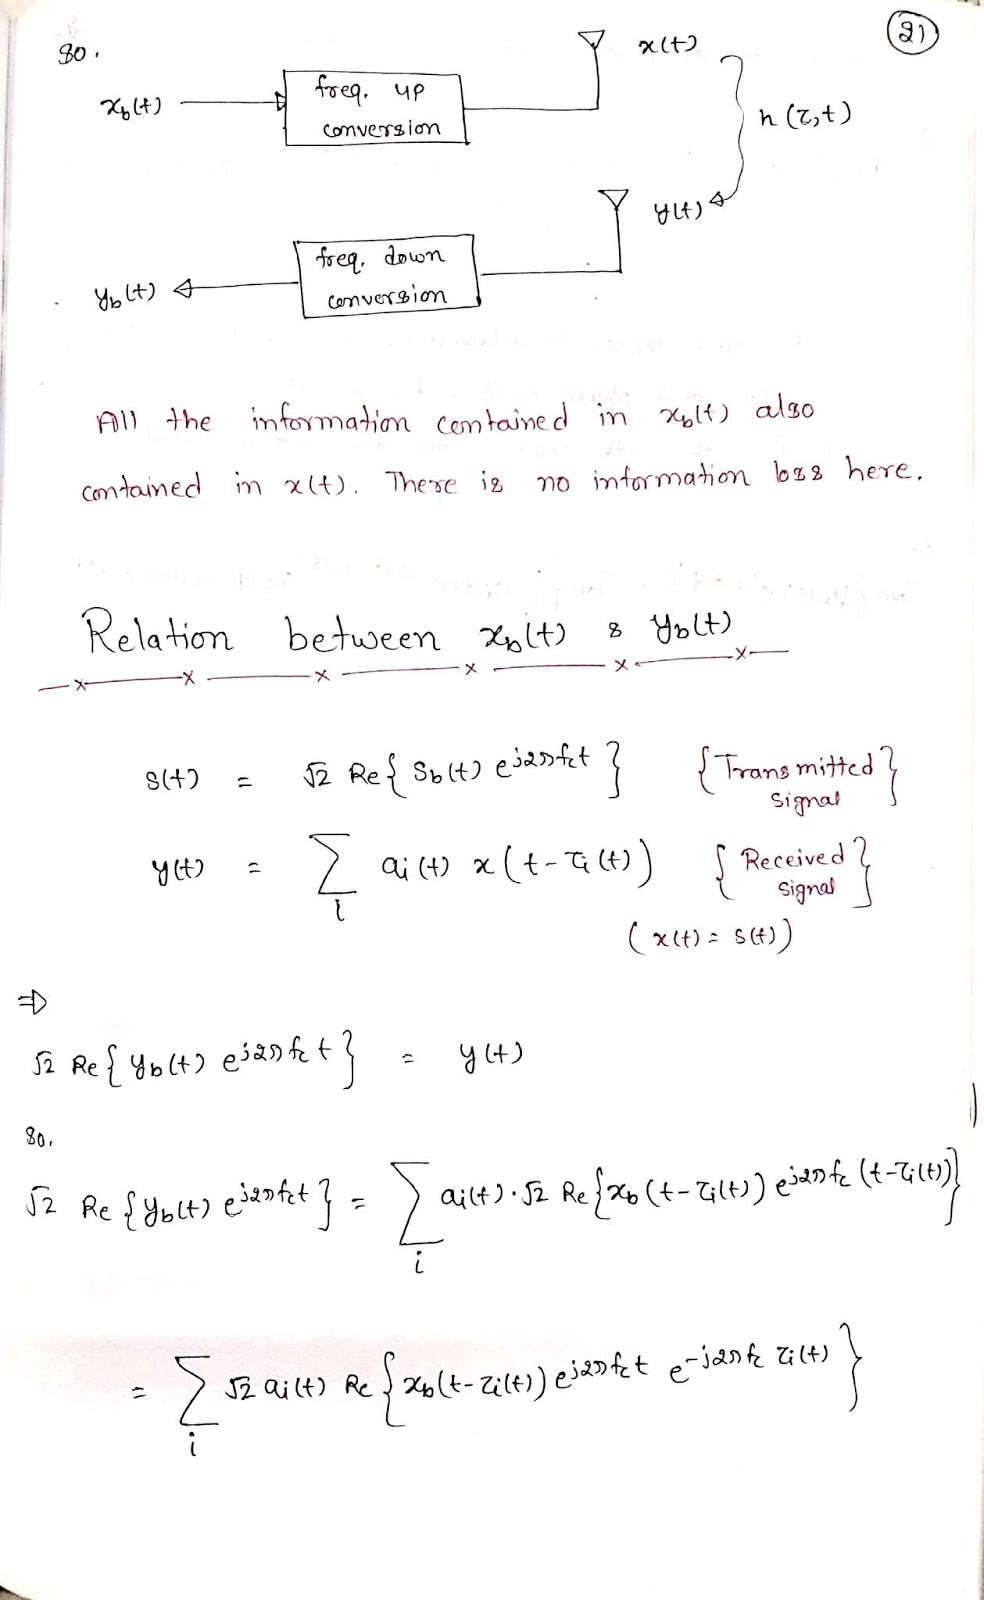 21
so,
x_b(t)
freq. up
conversion
x(t)
h(τ,t)
y(t)
freq. down
conversion
y_b(t)
All the information contained in x_b(t) also
contained in x(t). There is no information loss here.
Relation between x_b(t) & y_b(t)
s(t) = √2 Re{ s_b(t) e^{j2πf_c t} } {Transmitted signal}
y(t) = Σ_i a_i(t) x(t-τ_i(t)) {Received signal}
(x(t) = s(t))
⇒
√2 Re{ y_b(t) e^{j2πf_c t} } = y(t)
so,
√2 Re{ y_b(t) e^{j2πf_c t} } = Σ_i a_i(t)·√2 Re{ x_b(t-τ_i(t)) e^{j2πf_c(t-τ_i(t))} }
= Σ_i √2 a_i(t) Re{ x_b(t-τ_i(t)) e^{j2πf_c t} e^{-j2πf_c τ_i(t)} }